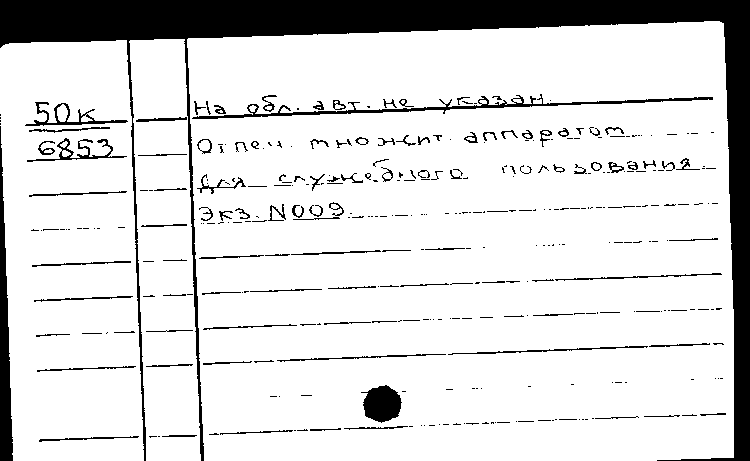 50к
6853
На обл. авт. не указан.
Отпеч. множит. аппаратом
Для служебного пользования.
Экз. N009